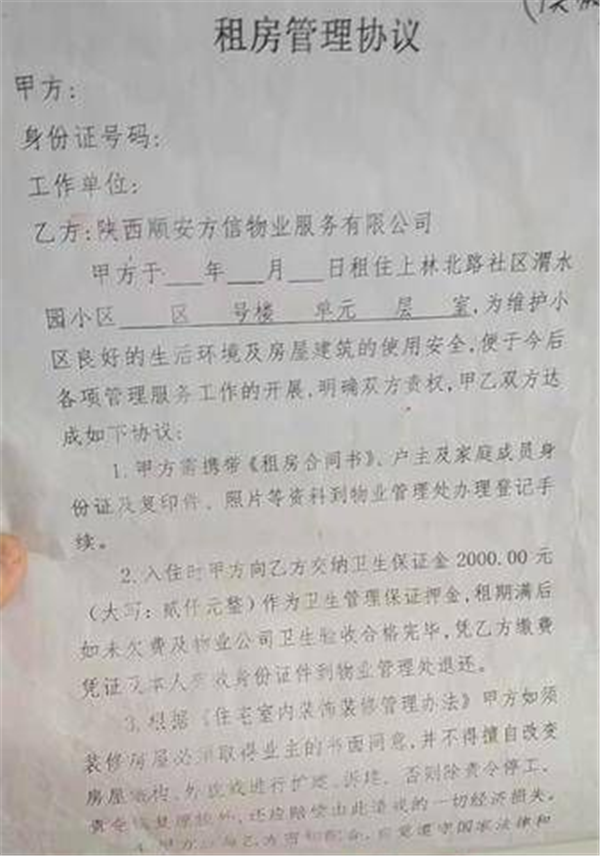 租房管理协议
甲方:
身份证号码:
工作单位:
乙方:陕西顺安方信物业服务有限公司
甲方于___年___月___日租住上林北路社区渭水
园小区____区 号楼 单元 层 室,为维护小
区良好的生活环境及房屋建筑的使用安全,便于今后
各项管理服务工作的开展,明确双方责权,甲乙双方达
成如下协议:
1.甲方需携带《租房合同书》、户主及家庭成员身
份证及复印件、照片等资料到物业管理处办理登记手
续。
2.入住时甲方向乙方交纳卫生保证金2000.00元
(大写:贰仟元整)作为卫生管理保证押金,租期满后
如未欠费及物业公司卫生验收合格完毕,凭乙方缴费
凭证及本人有效身份证件到物业管理处退还。
3.根据《住宅室内装饰装修管理办法》甲方如须
装修房屋必须取得业主的书面同意,并不得擅自改变
房屋结构、外立面或进行扩建、拆建、否则除责令停工、
责令恢复原状外,还应赔偿由此造成的一切经济损失。
4.甲方应与乙方密切配合,自觉遵守国家法律和